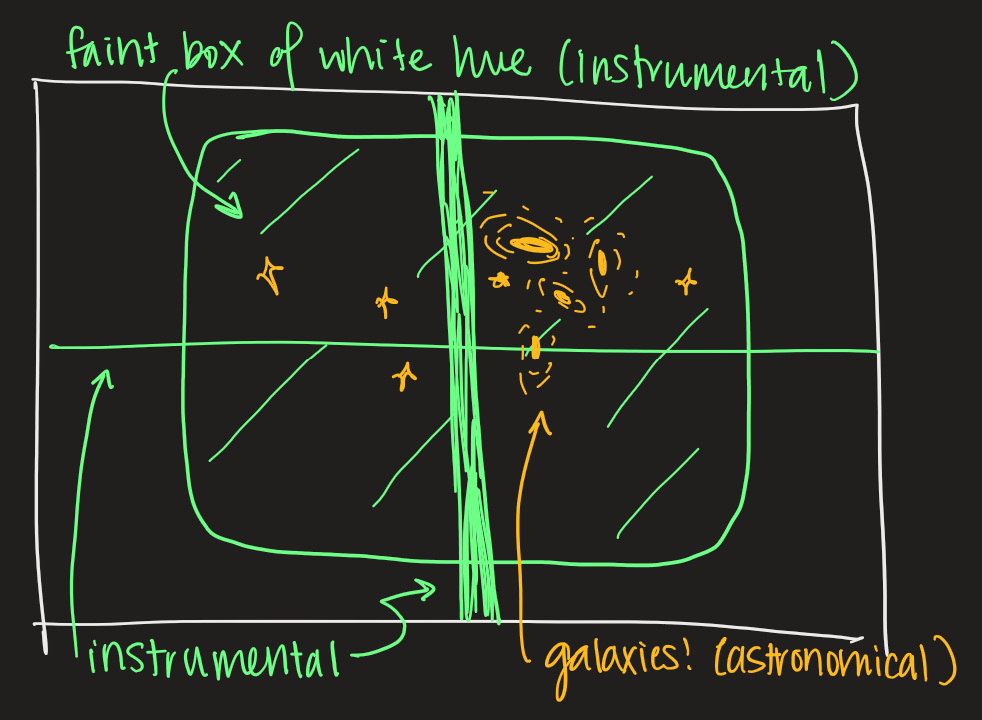 faint box of white hue (instrumental)
instrumental
galaxies! (astronomical)